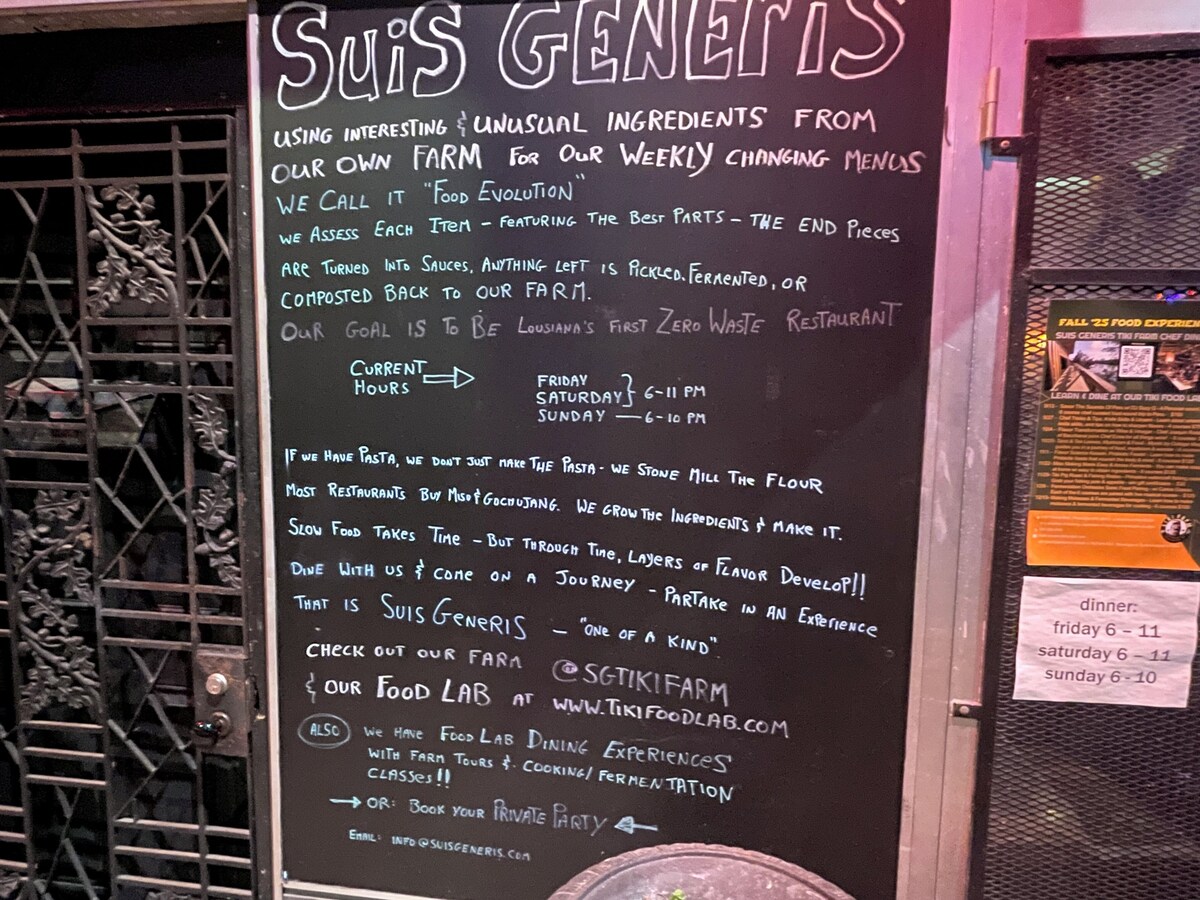 SUiS GENERIS
USING INTERESTING & UNUSUAL INGREDIENTS FROM
OUR OWN FARM FOR OUR WEEKLY CHANGING MENUS
WE CALL IT "FOOD EVOLUTION"
WE ASSESS EACH ITEM - FEATURING THE BEST PARTS - THE END PIECES
ARE TURNED INTO SAUCES, ANYTHING LEFT IS PICKLED, FERMENTED, OR
COMPOSTED BACK TO OUR FARM.
OUR GOAL IS TO BE LOUSIANA'S FIRST ZERO WASTE RESTAURANT
CURRENT
HOURS
FRIDAY
SATURDAY } 6-11 PM
SUNDAY — 6-10 PM
IF WE HAVE PASTA, WE DON'T JUST MAKE THE PASTA - WE STONE MILL THE FLOUR
MOST RESTAURANTS BUY MISO & GOCHUJANG. WE GROW THE INGREDIENTS & MAKE IT.
SLOW FOOD TAKES TIME - BUT THROUGH TIME, LAYERS OF FLAVOR DEVELOP!!
DINE WITH US & COME ON A JOURNEY - PARTAKE IN AN EXPERIENCE
THAT IS SUIS GENERIS - "ONE OF A KIND".
CHECK OUT OUR FARM @SGTIKIFARM
& OUR FOOD LAB AT WWW.TIKIFOODLAB.COM
ALSO WE HAVE FOOD LAB DINING EXPERIENCES
WITH FARM TOURS & COOKING/FERMENTATION
CLASSES!!
→ OR: BOOK YOUR PRIVATE PARTY ←
EMAIL: INFO@SUISGENERIS.COM
FALL '25 FOOD EXPERIE
SUIS GENERIS TIKI FARM CHEF DIN
LEARN & DINE AT OUR TIKI FOOD LA
dinner:
friday 6 – 11
saturday 6 – 11
sunday 6 - 10